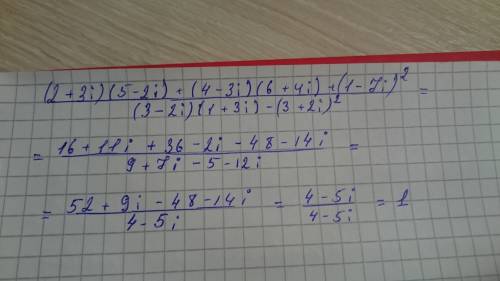 ((2+3i)(5-2i) + (4-3i)(6+4i) + (1-7i)²) / ((3-2i)(1+3i) - (3+2i)²) =
= (16 + 11i + 36 - 2i - 48 - 14i) / (9 + 7i - 5 - 12i) =
= (52 + 9i - 48 - 14i) / (4 - 5i) = (4 - 5i) / (4 - 5i) = 1